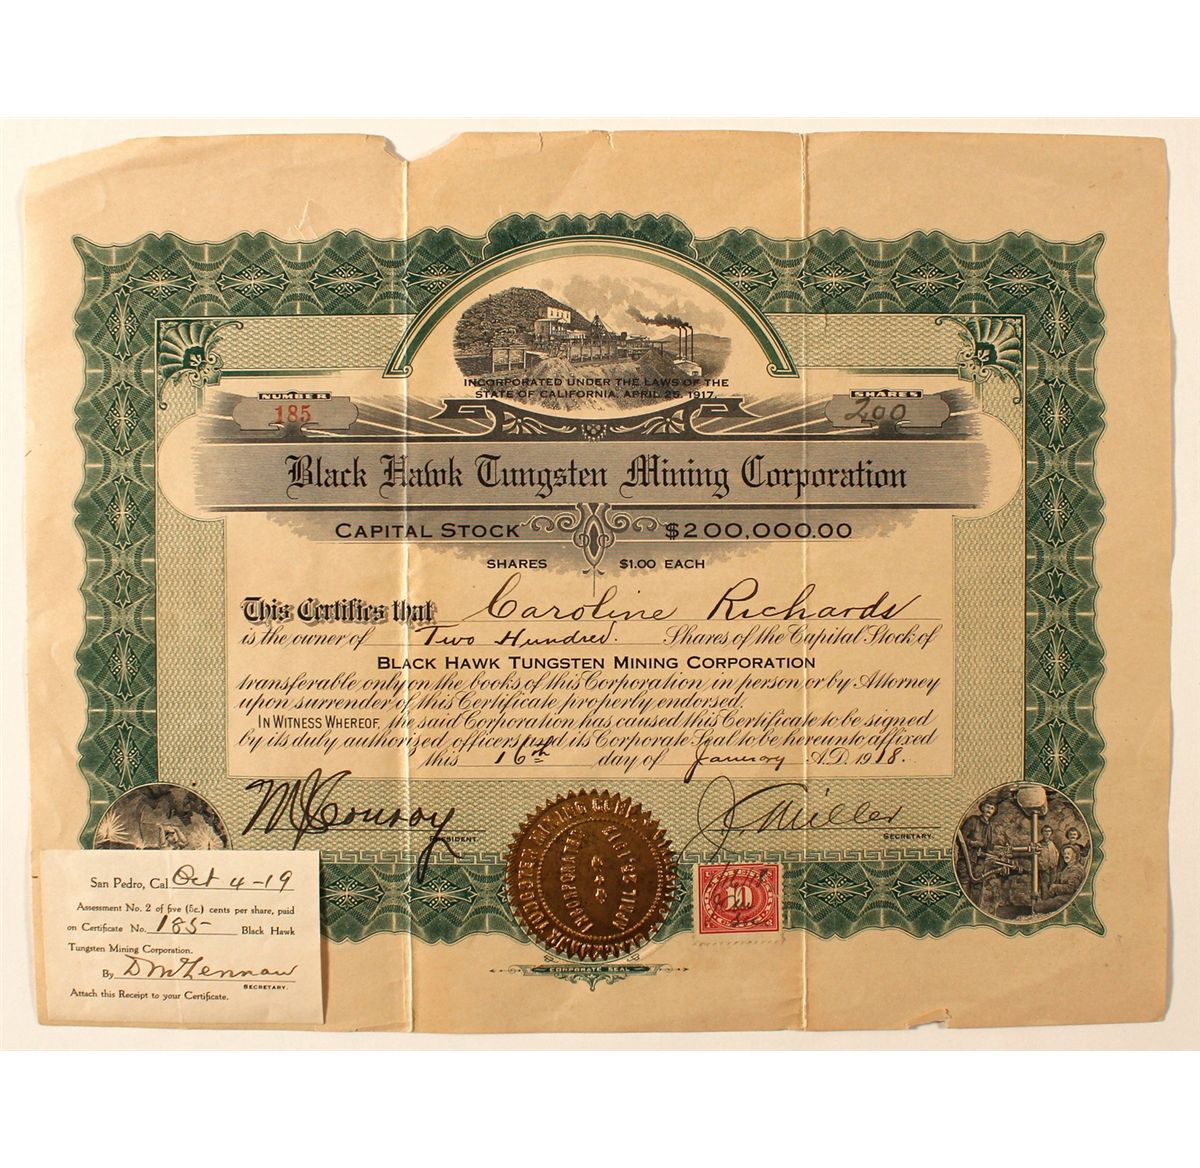 INCORPORATED UNDER THE LAWS OF THE
STATE OF CALIFORNIA, APRIL 25, 1917.
NUMBER
185
SHARES
200
Black Hawk Tungsten Mining Corporation
CAPITAL STOCK $200,000.00
SHARES $1.00 EACH
This Certifies that Caroline Richards
is the owner of Two Hundred. Shares of the Capital Stock of
BLACK HAWK TUNGSTEN MINING CORPORATION
transferable only on the books of this Corporation in person or by Attorney
upon surrender of this Certificate properly endorsed.
IN WITNESS WHEREOF, the said Corporation has caused this Certificate to be signed
by its duly authorized officers and its Corporate Seal to be hereunto affixed
this 16th day of January A.D. 1918.
M J Conroy
PRESIDENT.
J. Miller
SECRETARY.
10
CORPORATE SEAL
San Pedro, Cal. Oct 4-19
Assessment No. 2 of five (5c.) cents per share, paid
on Certificate No. 185 Black Hawk
Tungsten Mining Corporation.
By D McLennan
SECRETARY.
Attach this Receipt to your Certificate.